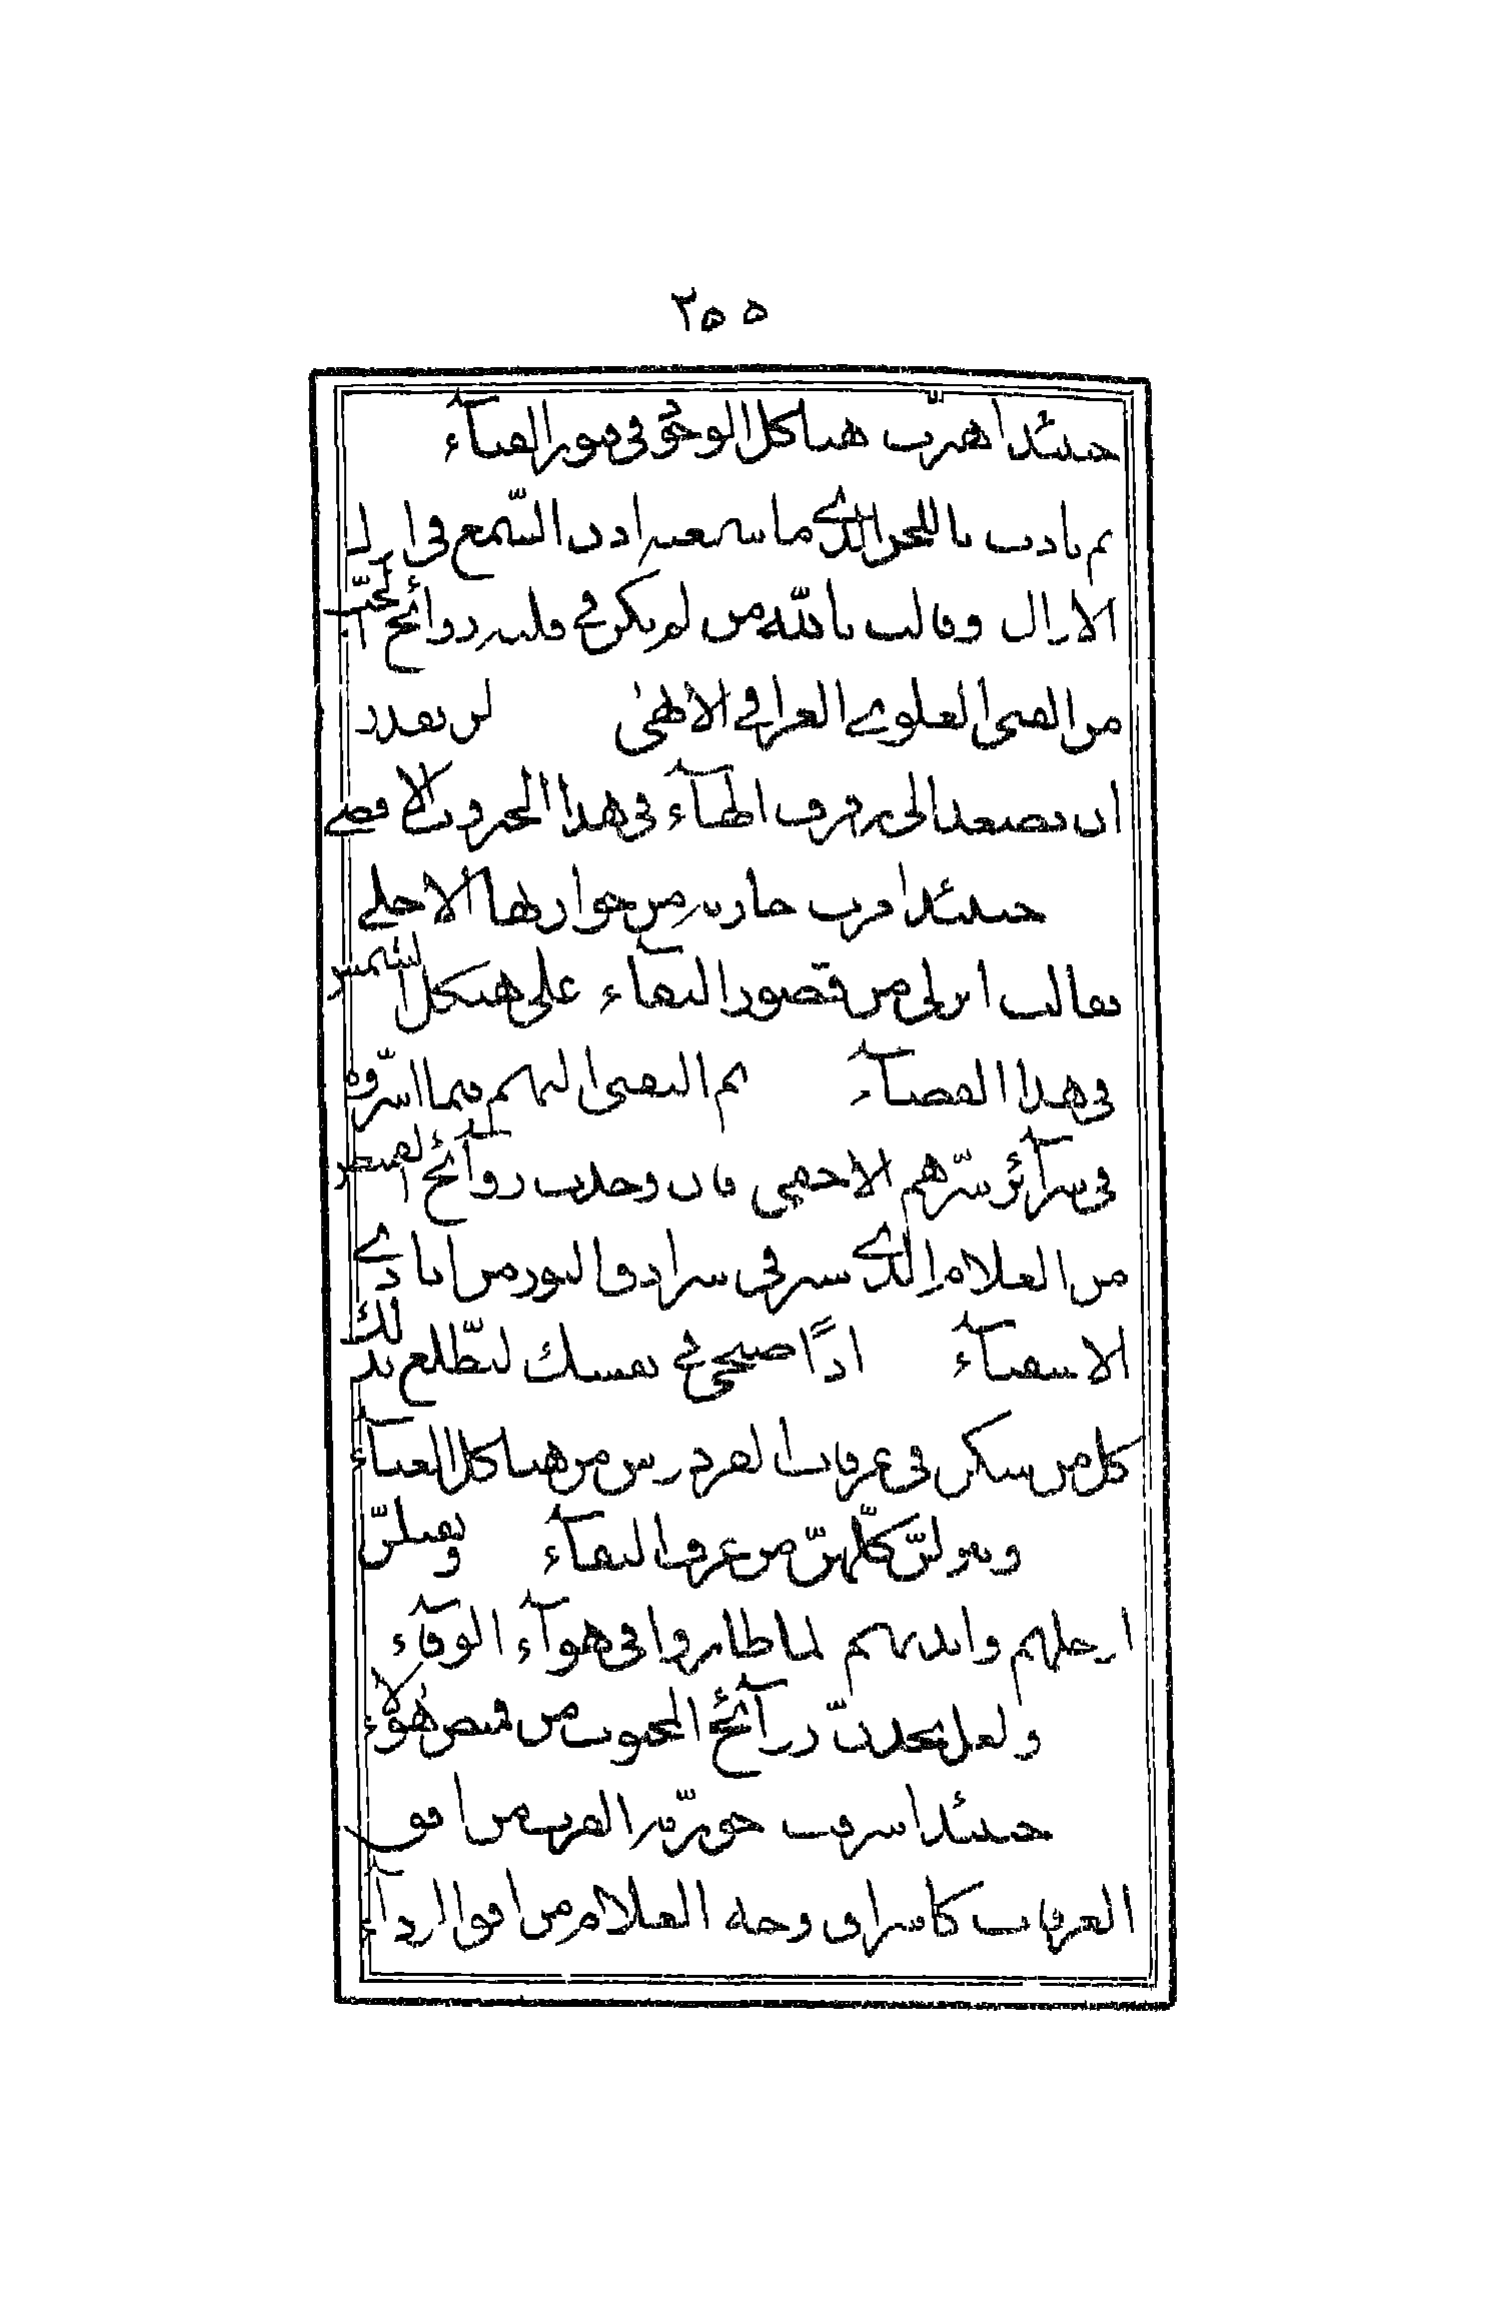 ٢٥٥
حينئذ اهتزّت هياكل الوجود فى قبور الفنآء
ثم نادت باللحن الّذى ما سمعته اذن السّمع فى ازل
الازال وقالت تاللّه من لم يكن فى قلبه روائح الحبّ
من الفتى العلوى العراقى الابهىٰ لن يقدر
ان يصعد الى رفرف الهآء فى هذا الجبروت الاقصى
حينئذ امرت جارية من جواريها الاحلى
فقالت انزلى من قصور البقآء على هيكل الشمس
فى هذا الفضآء ثم التفتى اليهم فيما اسرّوه
فى سرآئر سرّهم الاخفى فان وجدت روآئح القميص
من الغلام الّذى ستر فى سرادق النور من ايادى
الاشقيآء اذًا صيحى فى نفسك ليطّلع بذلك
كل من سكن فى غرفات الفردوس من هياكل الغنآء
وينزلنّ كلّهنّ من غرف البقآء ويقبلنّ
ارجلهم وايديهم لما طاروا فى هوآء الوفآء
ولعل يجدنّ روآئح المحبوب من قميص هٰؤلآء
حينئذ اشرقت حوريّة القرب من افق
الغرفات كاشراق وجه الغلام من افق الردآء